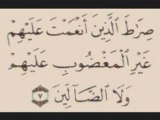 صِرَٰطَ ٱلَّذِينَ أَنْعَمْتَ عَلَيْهِمْ
غَيْرِ ٱلْمَغْضُوبِ عَلَيْهِمْ
وَلَا ٱلضَّآلِّينَ ٧